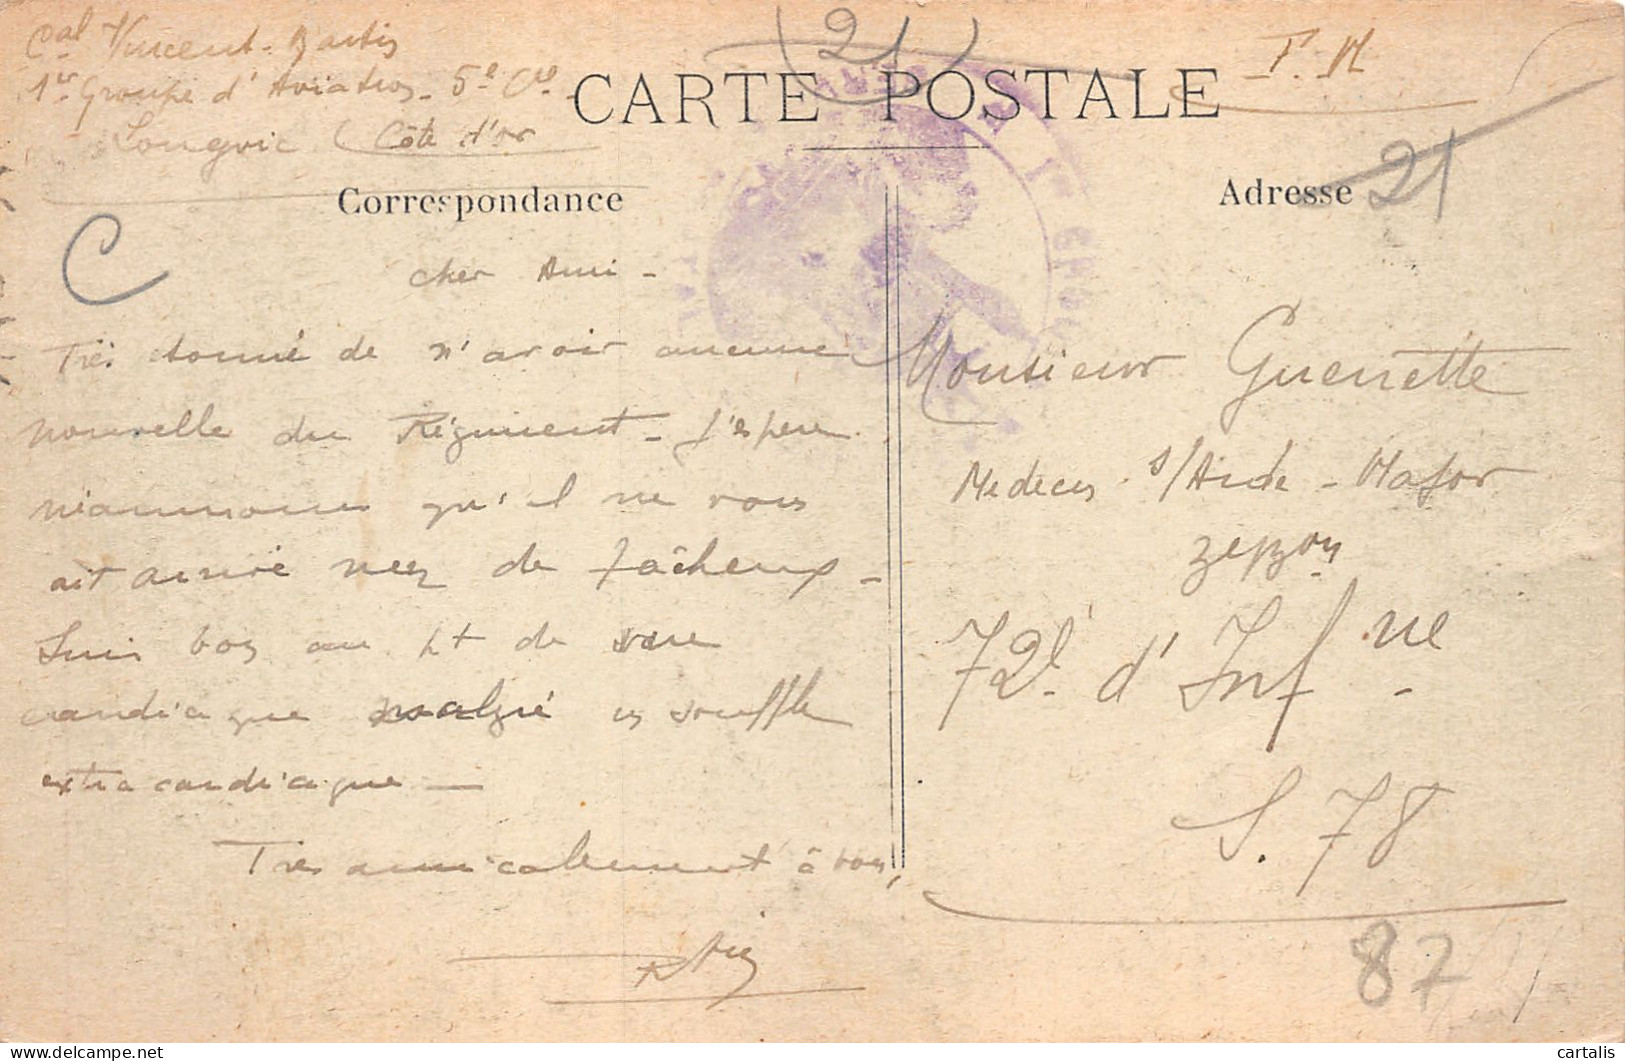 Cal Vincent-Bastis
1er Groupe d'Aviation - 5e Cie
Longvic (Côte d'or
(21)
CARTE POSTALE
F. M
Correspondance
Adresse
21
C
1er GROUPE
cher Ami -
Très étonné de n'avoir aucune
nouvelle du Régiment - J'espère
néanmoins qu'il ne vous
ait arrivé rien de fâcheux -
Suis bon au pt de vue
cardiaque malgré un souffle
extra cardiaque -
Très amicalement à vous,
Monsieur Guenette
Médecin s/Aide-Major
72e d'Infne
S. 78
87
cartalis